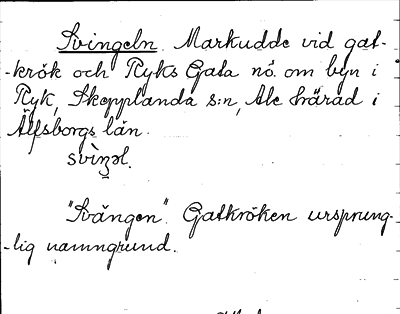 Svingeln. Markudde vid gat-
-krök och Ryks Gata nö. om byn i
Ryk, Skepplanda s:n, Ale härad i
Älfsborgs län.
"Svängen". Gatkröken ursprung-
-lig namngrund.